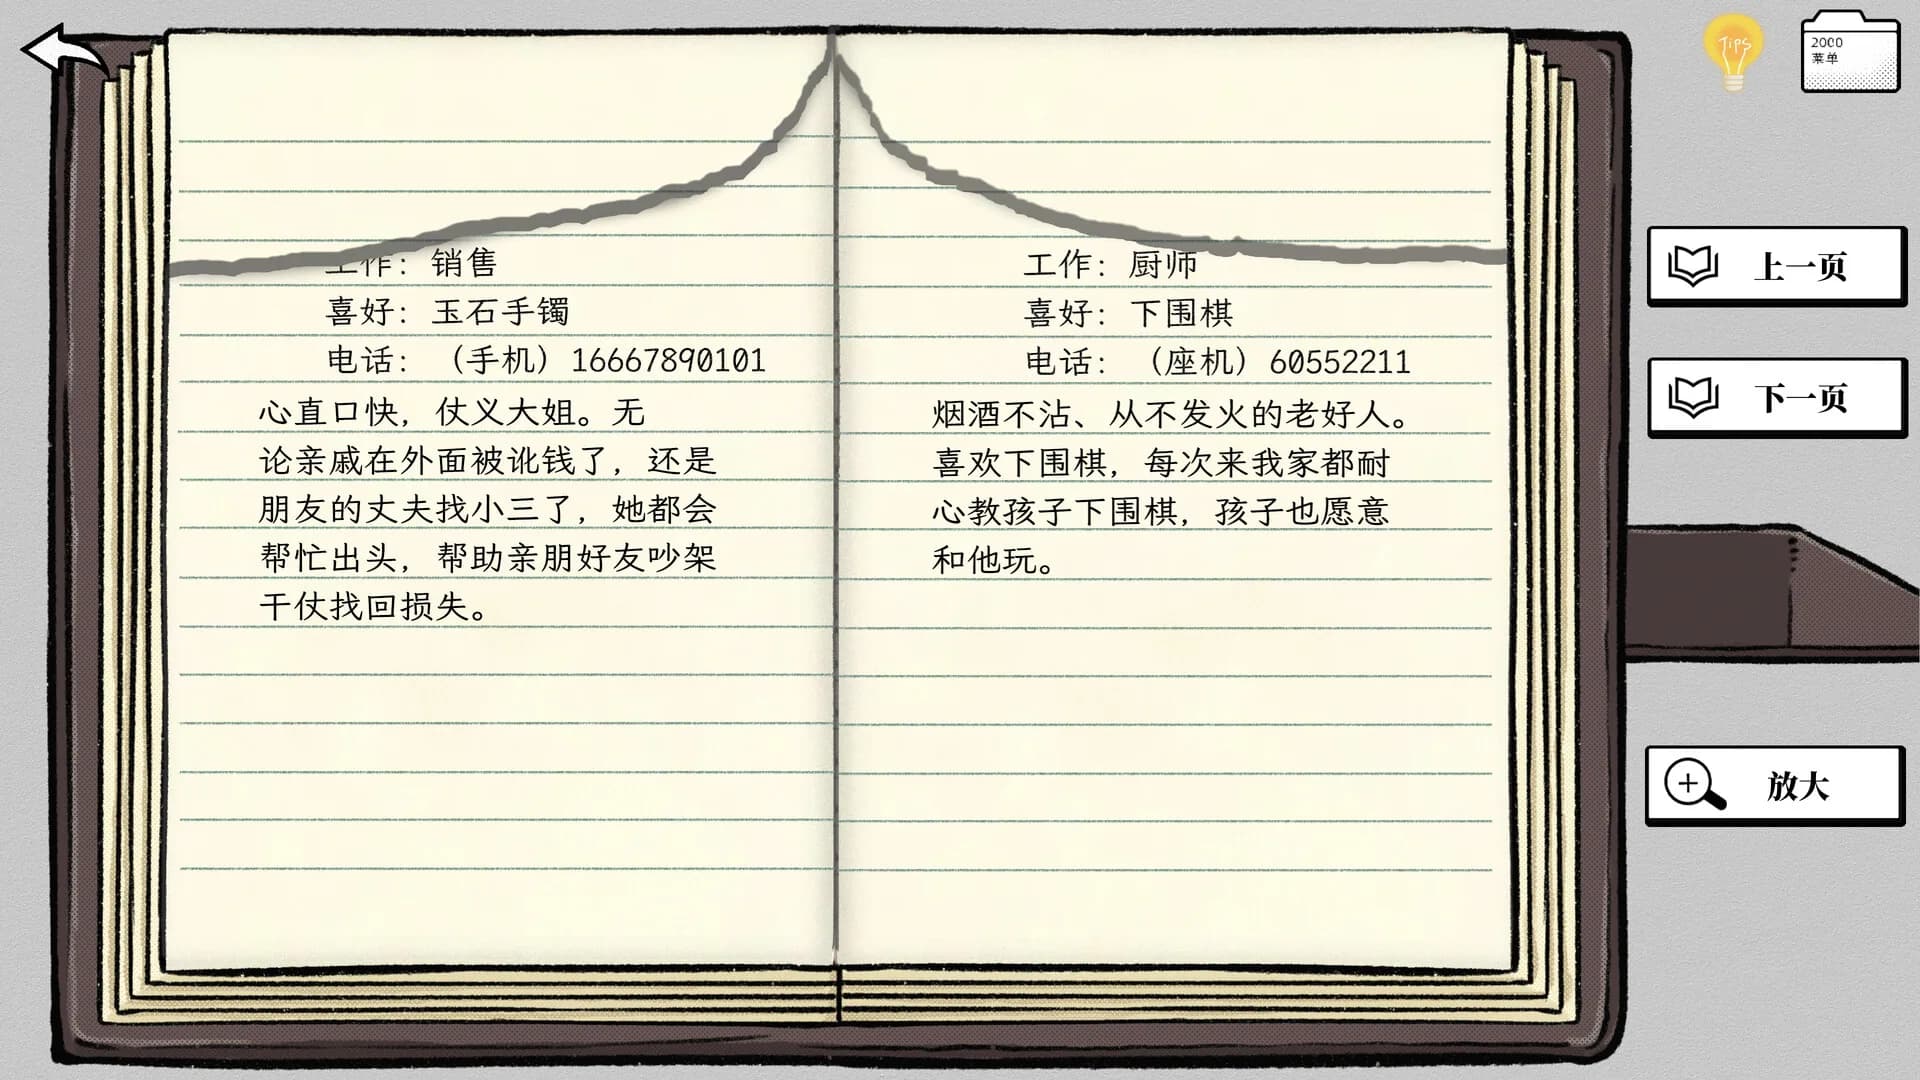 工作：销售
喜好：玉石手镯
电话：（手机）16667890101
心直口快，仗义大姐。无
论亲戚在外面被讹钱了，还是
朋友的丈夫找小三了，她都会
帮忙出头，帮助亲朋好友吵架
干仗找回损失。
工作：厨师
喜好：下围棋
电话：（座机）60552211
烟酒不沾、从不发火的老好人。
喜欢下围棋，每次来我家都耐
心教孩子下围棋，孩子也愿意
和他玩。
Tips
2000
菜单
上一页
下一页
放大